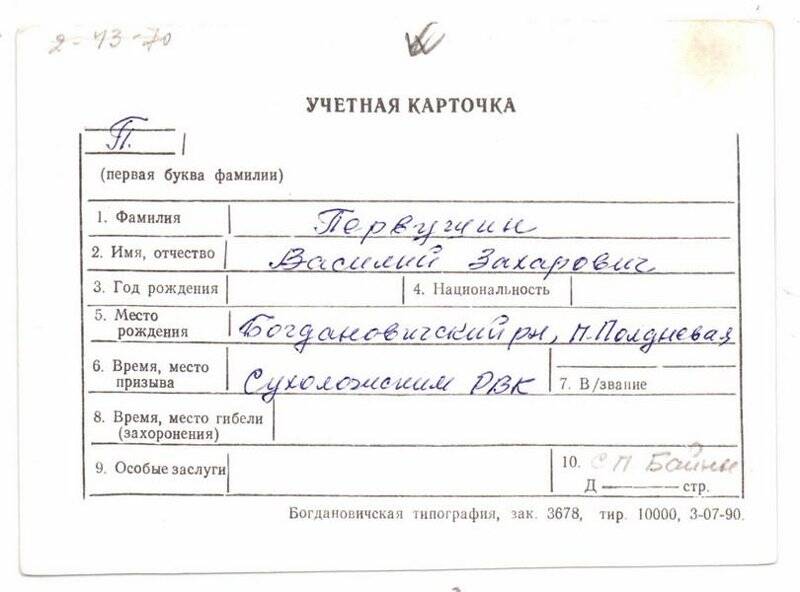 2-13-70
УЧЕТНАЯ КАРТОЧКА
П.
(первая буква фамилии)
1. Фамилия Первушин
2. Имя, отчество Василий Захарович
3. Год рождения 4. Национальность
5. Место рождения Богдановичский рн, п. Полдневая
6. Время, место призыва Сухоложским РВК 7. В/звание
8. Время, место гибели (захоронения)
9. Особые заслуги 10. СП Байны
Д — стр.
Богдановичская типография, зак. 3678, тир. 10000, 3-07-90.